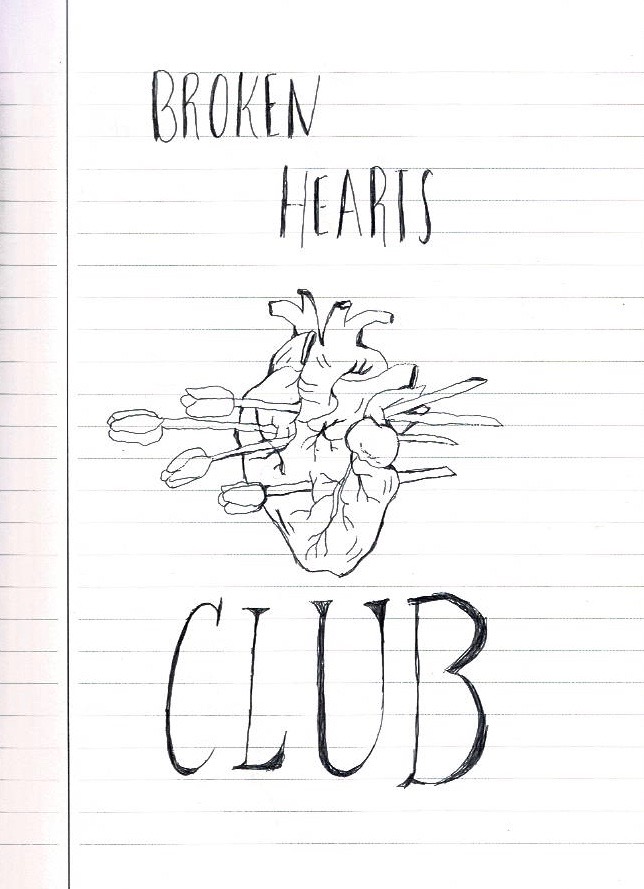 BROKEN
HEARTS
CLUB